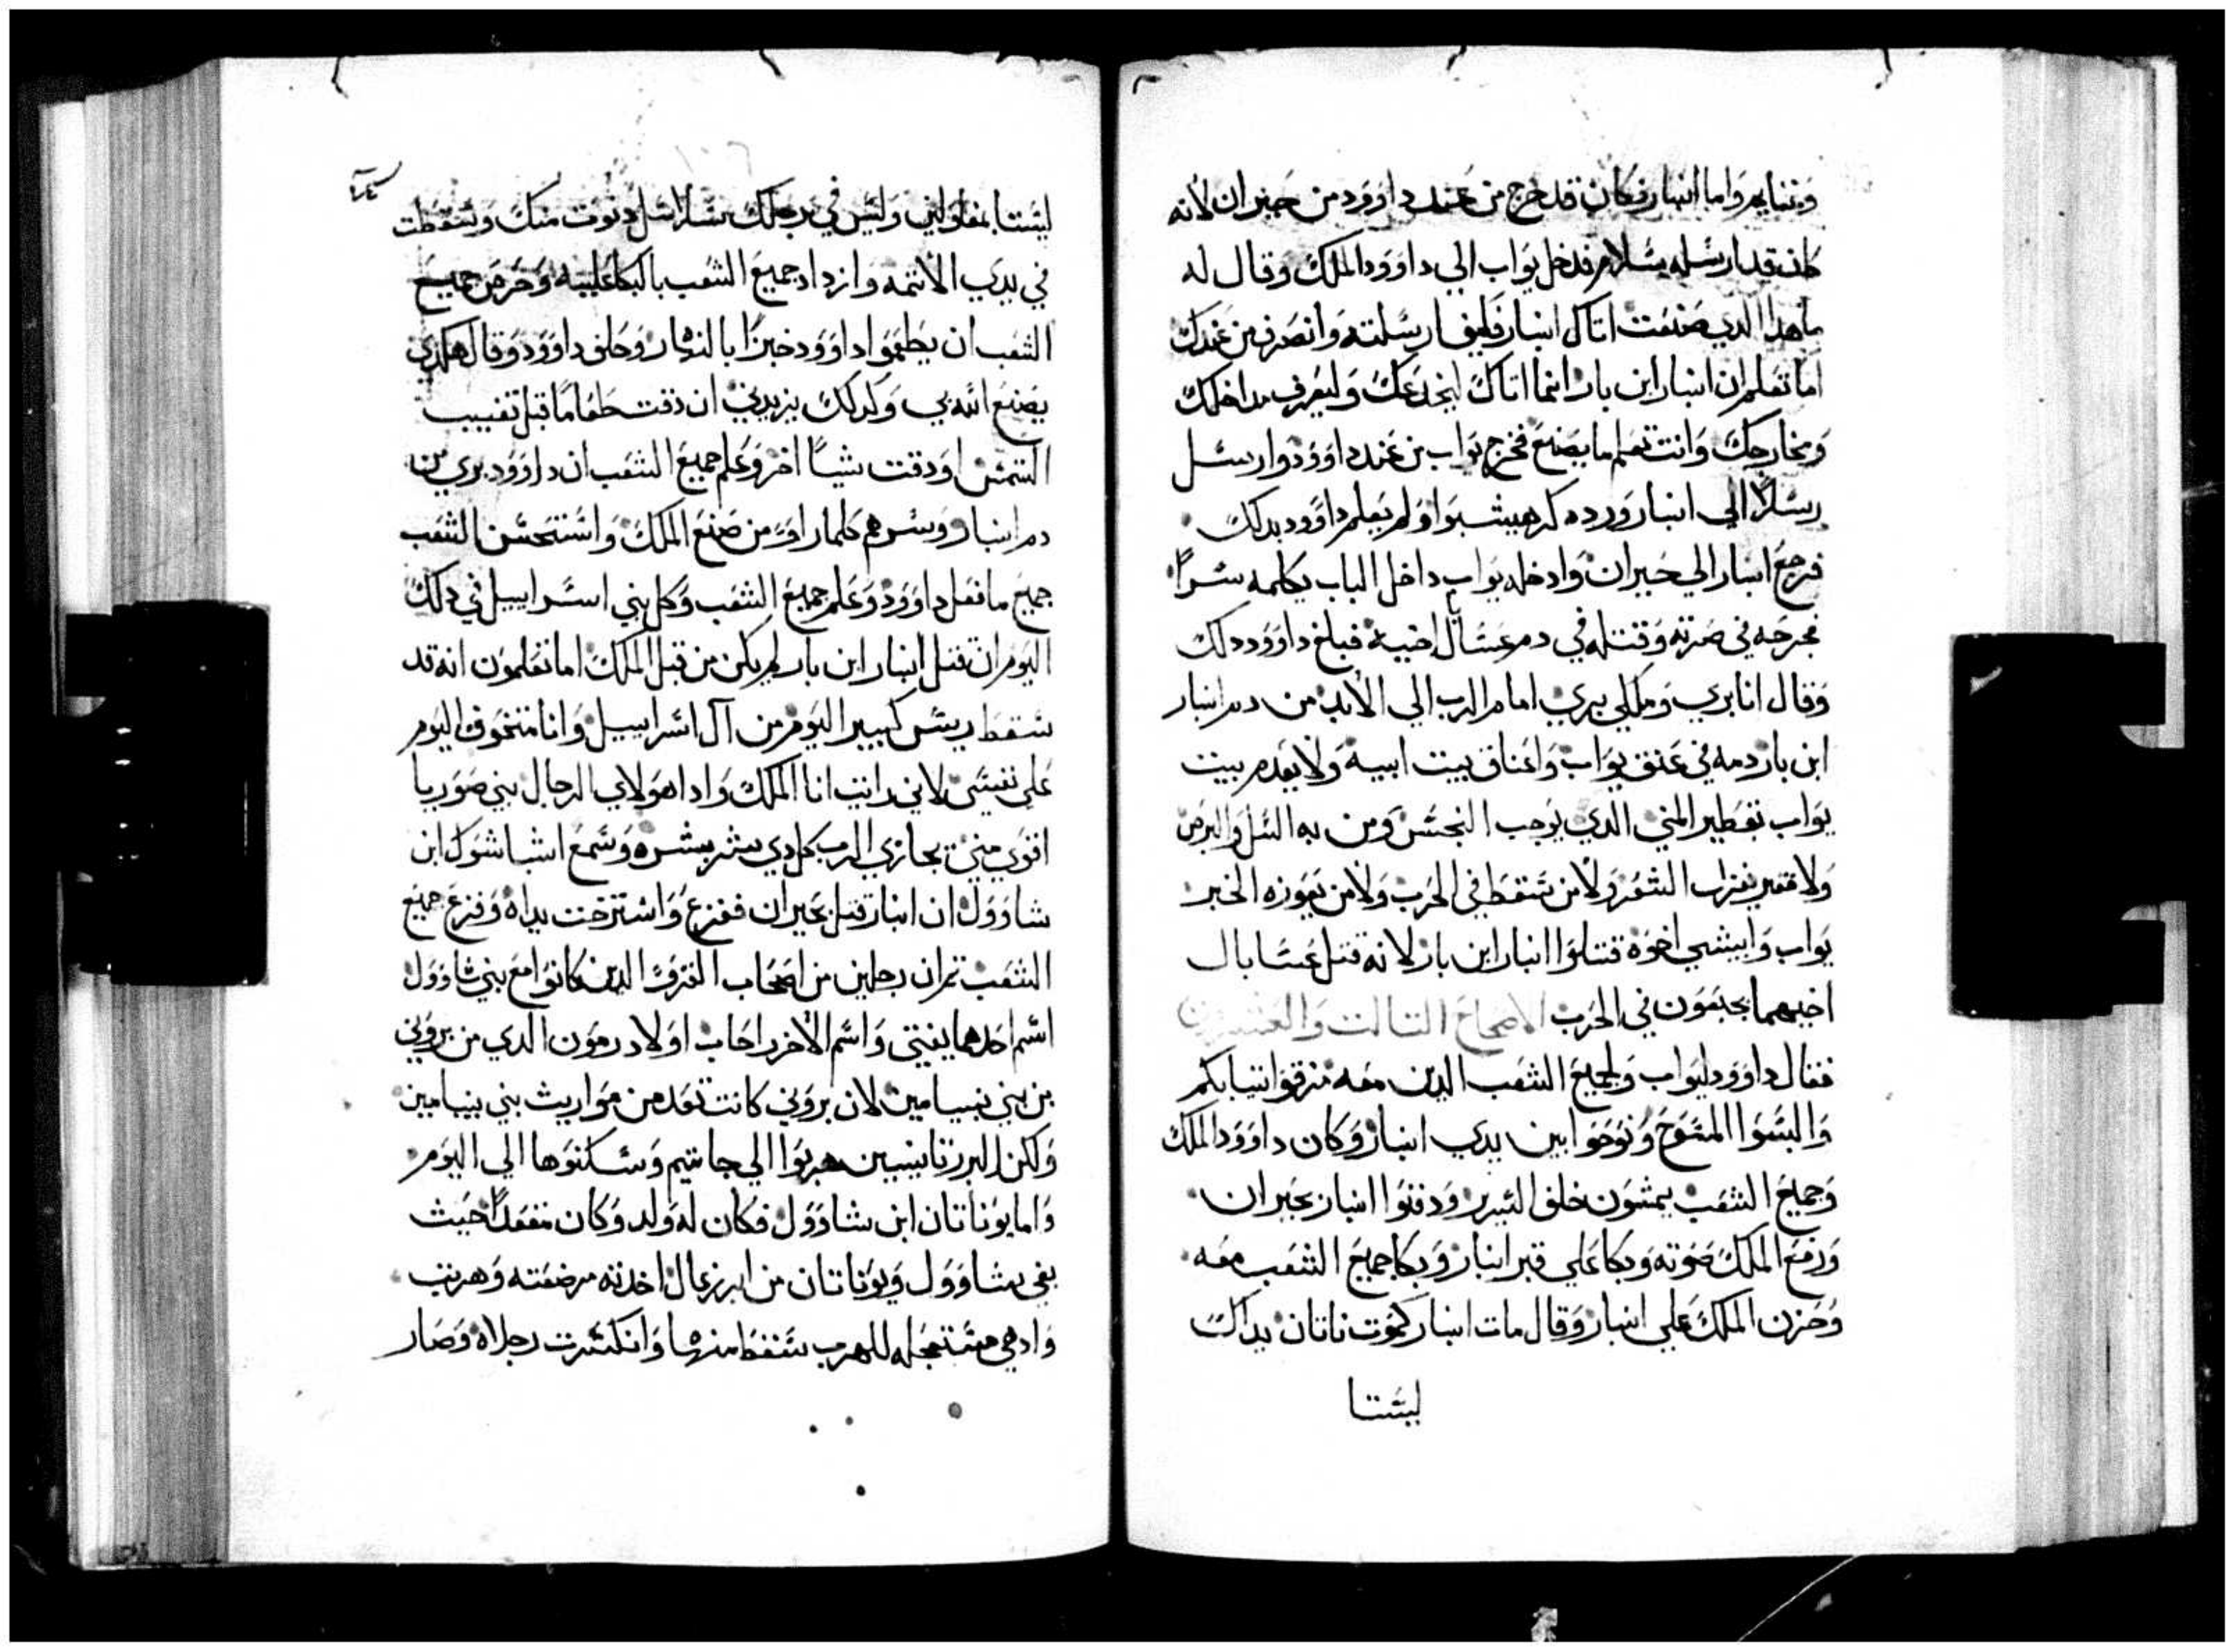 وثنايهم واما ابنار فكان قد خرج من عند داوود من حبران لانه
كان قد ارسله بسلام فدخل يواب الي داوود الملك وقال له
ما هدا الدي صنعت اتاك ابنار فليف ارسلته وانصرف من عندك
اما تعلم ان ابنار ابن بار انما اتاك ليخدعك وليعرف مداخلك
ومخارجك وانت تعلم ما يصنع فخرج يواب من عند داوود وارسل
رسلا الي ابنار ورده كرهيشبوا ولم يعلم داوود بدلك
فرجع ابنار الي حبران وادخله يواب داخل الباب يكلمه سرا
فجرحه في صرته وقتله في دم عسال اخيه فبلغ داوود دلك
وقال انا بري وملكي بري امام الرب الي الابد من دم ابنار
ابن بار دمه في عنق يواب واعناق بيت ابيه ولا يعدم بيت
يواب تقطير المني الدي يوجب النجس ومن به السل والبرص
ولا من سقط في الحرب ولا من يعوزه الخبز
يواب وابيشي اخوه قتلوا ابنار ابن بار لانه قتل عسابال
اخيهما بجبعون في الحرب الاصحاح التالت والعشرين
فقال داوود ليواب ولجميع الشعب الدين معه مزقوا تيابكم
والبسوا المسوح ونوحوا بين يدي ابنار وكان داوود الملك
وجميع الشعب يمشون خلف السرير ودفنوا ابنار بحبران
ورفع الملك صوته وبكا علي قبر ابنار وبكا جميع الشعب معه
وحزن الملك علي ابنار وقال مات ابنار كموت ناتان يداك
ليستا
ليستا بمغلولتي وليس في رجلك دنوت منك وسقطت
في يدي الاتمه وازداد جميع الشعب بالبكا عليه وحرص جميع
الشعب ان يطعموا داوود خبزا بالنهار وحلف داوود وقال هكدي
يصنع الله بي وكدلك يزيدني ان دقت طعاما قبل تغييب
الشمس او دقت شيا اخر وعلم جميع الشعب ان داوود بري من
دم ابنار وسرهم كلما راوه من صنع الملك واستحسن الشعب
جميع ما فعل داوود وعلم جميع الشعب وكل بني اسراييل في دلك
اليوم ان قتل ابنار ابن بار لم يكن من قبل الملك اما تعلمون انه قد
سقط ريس كبير اليوم من آل اسراييل وانا متخوف اليوم
علي نفسي لاني رايت انا الملك وادا هولاي الرجال بني صوريا
اقوي مني يجازي الرب كل دي شر بشره وسمع اشباشول ابن
شاوول ان ابنار قتل بحبران ففزع واسترخت يداه وفزع جميع
الشعب تم ان رجلين من اصحاب الغزو الدين كانوا مع بني شاوول
اسم احدهما يفتي واسم الاخر راحاب اولاد رمون الدي من بروتي
من بني بنيامين لان بروتي كانت تعد من مواريث بني بنيامين
ولكن البرزتانيين هربوا الي جاتيم وسكنوها الي اليوم
واما يوناتان ابن شاوول فكان له ولد وكان مقعدا حيث
بغي شاوول ويوناتان من ابرزعال اخدته مرضعته وهربت
وادهي مستعجله للهرب سقط منها وانكسرت رجلاه وصار